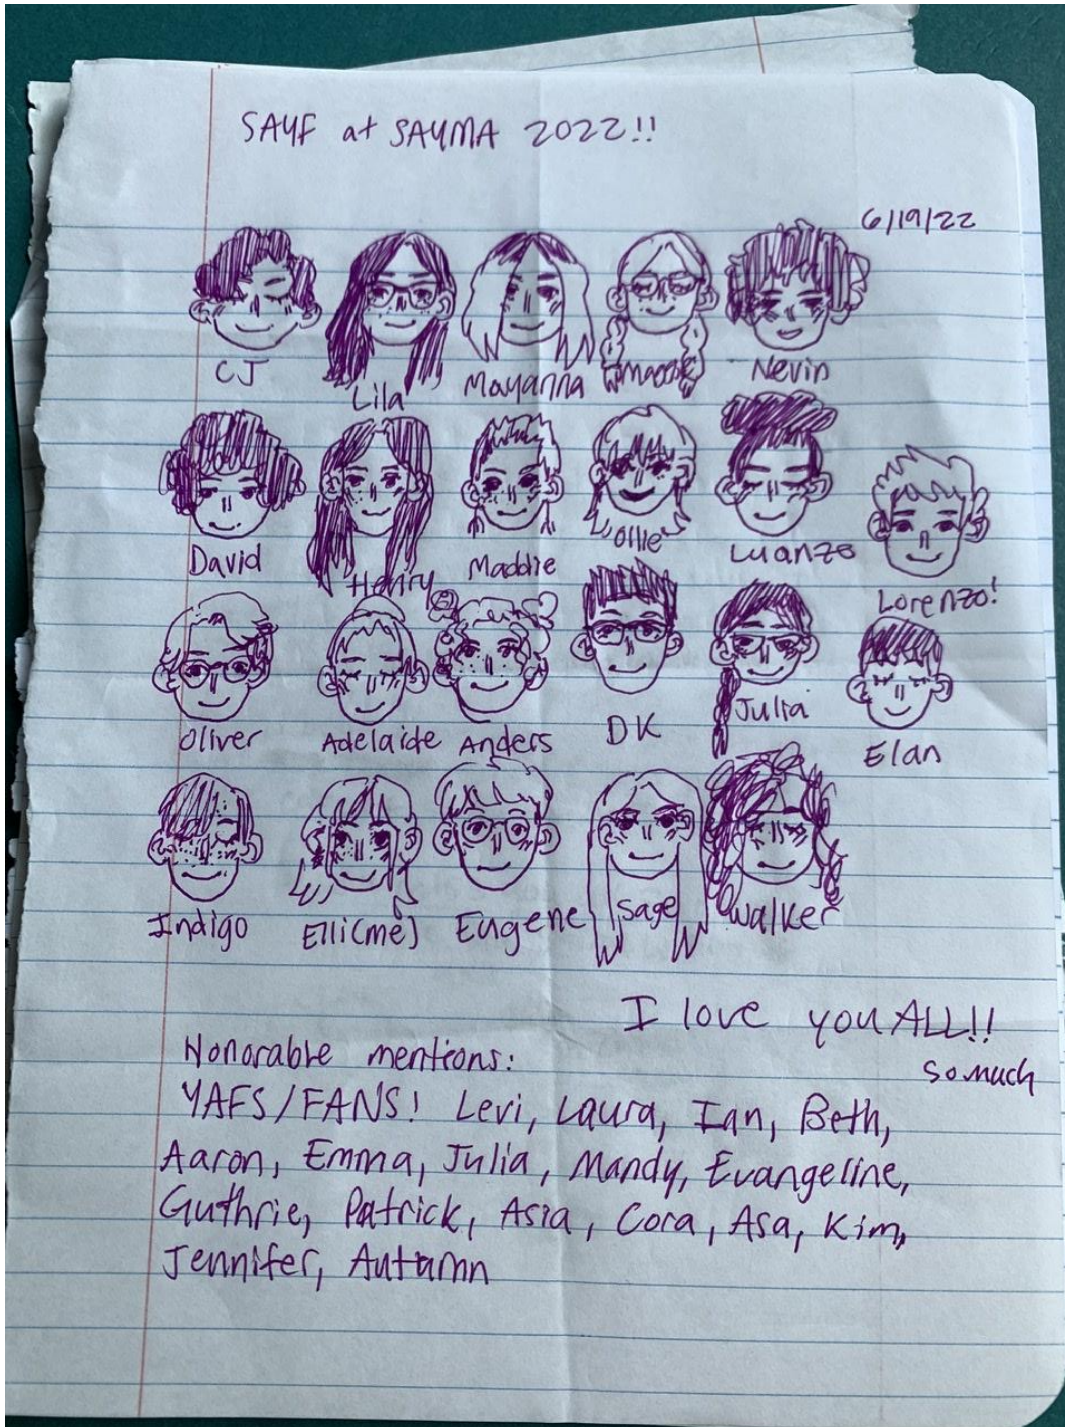 SAYF at SAYMA 2022!!
6/19/22
CJ Lila Mayanna Nevin
David Henry Maddie Ollie Luanzo Lorenzo!
Oliver Adelaide Anders DK Julia Elan
Indigo Elli(me) Eugene Sage Walker
I love you ALL!!
so much
Honorable mentions:
YAFS/FANS! Levi, Laura, Ian, Beth,
Aaron, Emma, Julia, Mandy, Evangeline,
Guthrie, Patrick, Asia, Cora, Asa, Kim,
Jennifer, Autumn